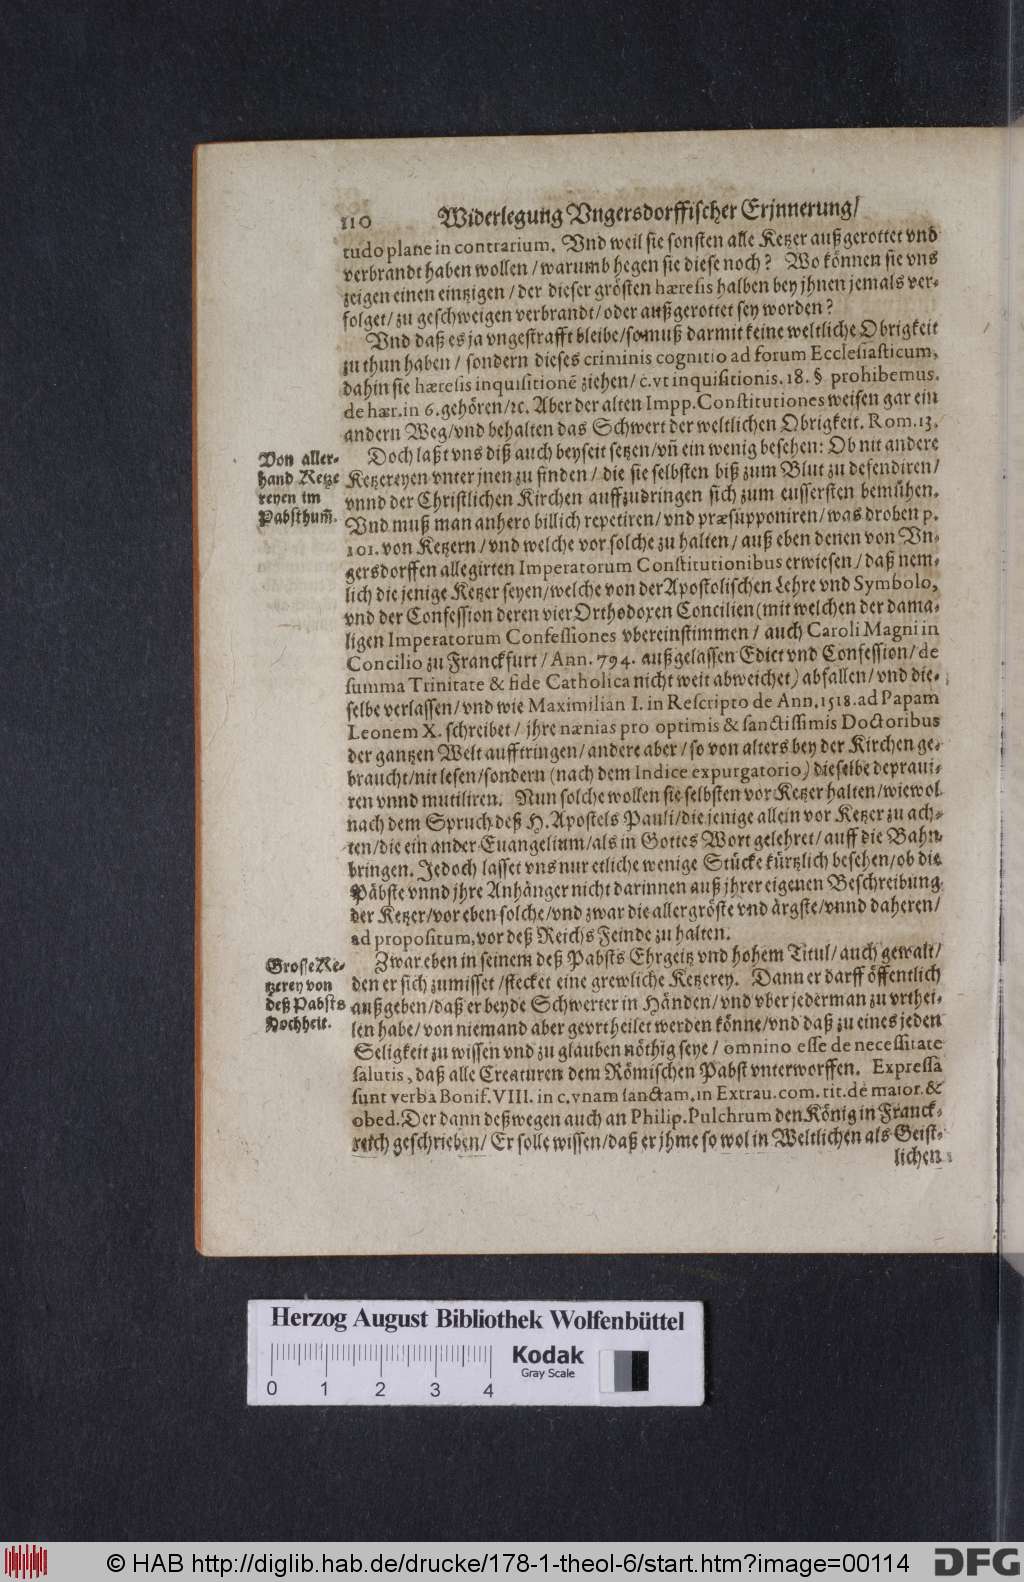 110 Widerlegung Vngersdorffischer Erjnnerung/
tudo plane in contrarium. Vnd weil sie sonsten alle Ketzer außgerottet vnd
verbrandt haben wollen/warumb hegen sie diese noch? Wo können sie vns
zeigen einen eintzigen/der dieser grösten hæresis halben bey jhnen jemals ver-
folget/zu geschweigen verbrandt/oder außgerottet sey worden?
Vnd daß es ja vngestrafft bleibe/so muß darmit keine weltliche Obrigkeit
zu thun haben/ sondern dieses criminis cognitio ad forum Ecclesiasticum,
dahin sie hæresis inquisitionē ziehen/c.vt inquisitionis. 18. § prohibemus.
de hær.in 6.gehören/ꝛc. Aber der alten Impp.Constitutiones weisen gar ein
andern Weg/vnd behalten das Schwert der weltlichen Obrigkeit. Rom.13.
Von aller-
hand Ketze
reyen im
Pabsthum̃.
Doch laßt vns diß auch beyseit setzen/vñ ein wenig besehen: Ob nit andere
Ketzereyen vnter jnen zu finden/ die sie selbsten biß zum Blut zu defendiren/
vnnd der Christlichen Kirchen auffzudringen sich zum eussersten bemühen.
Vnd muß man anhero billich repetiren/vnd præsupponiren/was droben p.
101. von Ketzern/vnd welche vor solche zu halten/ auß eben denen von Vn-
gersdorffen allegirten Imperatorum Constitutionibus erwiesen/daß nem-
lich die jenige Ketzer seyen/welche von der Apostolischen Lehre vnd Symbolo,
vnd der Confession deren vier Orthodoxen Concilien(mit welchen der dama-
ligen Imperatorum Confessiones vbereinstimmen/ auch Caroli Magni in
Concilio zu Franckfurt/Ann. 794. außgelassen Edict vnd Confession/de
summa Trinitate & fide Catholica nicht weit abweichet) abfallen/vnd die-
selbe verlassen/vnd wie Maximilian I. in Rescripto de Ann.1518.ad Papam
Leonem X. schreibet/ jhre nænias pro optimis & sanctissimis Doctoribus
der gantzen Welt aufftringen/andere aber/so von alters bey der Kirchen ge-
braucht/nit lesen/sondern (nach dem Indice expurgatorio) dieselbe deprаui-
ren vnnd mutiliren. Nun solche wollen sie selbsten vor Ketzer halten/wiewol
nach dem Spruch deß H. Apostels Pauli/die jenige allein vor Ketzer zu ach-
ten/die ein ander Euangelium/als in Gottes Wort gelehret/auff die Bahn
bringen. Jedoch lasset vns nur etliche wenige Stücke kürtzlich besehen/ob die
Päbste vnnd jhre Anhänger nicht darinnen auß jhrer eigenen Beschreibung
der Ketzer/vor eben solche/vnd zwar die allergröste vnd ärgste/vnnd daheren/
ad propositum,vor deß Reichs Feinde zu halten.
Grosse Ke-
tzerey von
deß Pabsts
Hochheit.
Zwar eben in seinem deß Pabsts Ehrgeitz vnd hohem Titul/auch gewalt/
den er sich zumisset/stecket eine grewliche Ketzerey. Dann er darff öffentlich
außgeben/daß er beyde Schwerter in Händen/vnd vber jederman zu vrthei-
len habe/von niemand aber gevrtheilet werden könne/vnd daß zu eines jeden
Seligkeit zu wissen vnd zu glauben nöthig seye/ omnino esse de necessitate
salutis, daß alle Creaturen dem Römischen Pabst vnterworffen. Expressa
sunt verba Bonif.VIII. in c.vnam sanctam,in Extrau.com.tit.de maior.&
obed.Der dann deßwegen auch an Philip.Pulchrum den König in Franck-
reich geschrieben/ Er solle wissen/daß er jhme so wol in Weltlichen als Geist-
lichen
Herzog August Bibliothek Wolfenbüttel
0 1 2 3 4
Kodak
Gray Scale
© HAB http://diglib.hab.de/drucke/178-1-theol-6/start.htm?image=00114
DFG